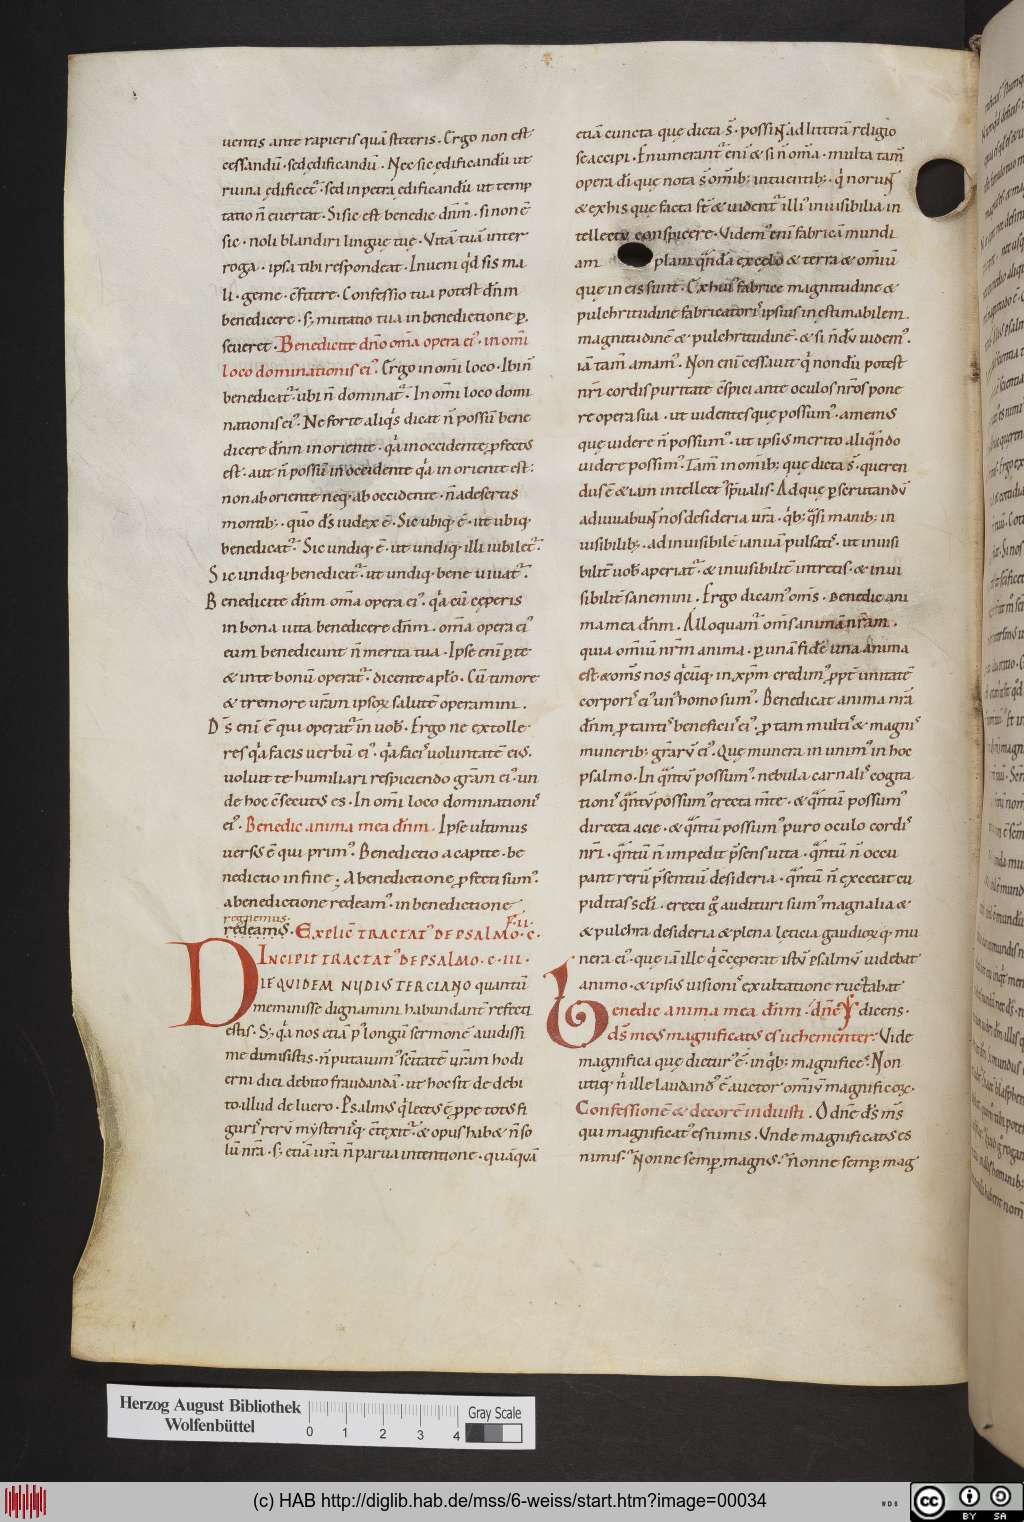 uentis ante rapieris quā steteris. Ergo non est
cessandū· sed edificandū. Nec sic edificandū ut
ruina ędificet᷒· sed in petra edificandū ut temp
tatio n̄ euertat· Si sic est benedic dn̄m· si non ē
sic· noli blandiri linguę tuę· Vitā tuā inter
roga· ipsa tibi respondeat· Inueni qͥd sis ma
li· geme· c̄fitere· Confessio tua potest dn̄m
benedicere· sꝫ mutatio tua in benedictione ꝑ
seueret· Benedicite dn̄o om̄a opera eiꝰ· in om̄i
loco dominationis eiꝰ. Ergo in om̄i loco· Ibi n̄
benedicat᷒· ubi n̄ dominat᷒· In om̄i loco domi
nationis eiꝰ. Ne forte aliqͥs dicat n̄ possū bene
dicere dn̄m in oriente· qͥa in occidente ꝓfectꝰ
est· aut n̄ possū in occidente qͥa in oriente est:
non ab oriente neqꝫ ab occidente· n̄ a desertis
montibꝫ· quō d̄s iudex ē· Sic ubiqꝫ ē· ut ubiqꝫ
benedicat᷒. Sic undiqꝫ ē· ut undiqꝫ illi iubilet᷒.
Sic undiqꝫ benedicit᷒· ut undiqꝫ bene uiuat᷒.
Benedicite dn̄m om̄a opera eiꝰ· qͥa cū cęperis
in bona uita benedicere dn̄m· om̄a opera eiꝰ
eum benedicunt n̄ merita tua· Ipse eni ꝑ te
& in te bonū operat᷒· dicente apl̄o· Cū timore
& tremore ur̄am ipsoꝝ salutē operamini.
D̄s enī ē qui operat᷒ in uob̄· Ergo ne extolle
res qͥa facis uerbū eiꝰ· qͥa facis uoluntatē eiꝰ.
uoluit te humiliari respiciendo gr̄am eiꝰ· un
de hoc c̄secutꝰ es· In om̄i loco dominationis
eiꝰ· Benedic anima mea dn̄m. Ipse ultimus
uersꝰ ē qui primꝰ. Benedictio a capite· be
nedictio in fine; A benedictione ꝓfecti sumꝰ.
a benedictione redeamꝰ. in benedictione
regnemus.
redeamꝰ. Explic̄ tractatꝰ de psalmo· c· F·ii·
Incipit tractatꝰ de psalmo· c·iii·
Die quidem nudiꝰ terciano quantū
meminisse dignamini habundant̄ refecti
estis· Sꝫ qͥa nos etiā ꝑ longū sermonē audissi
me dimisistis· n̄ putauimꝰ sc̄itatē ur̄am hodi
erni diei debito fraudandā· ut hoc sit de debi
to· illud de lucro· Psalmꝰ qͥ lectꝰ ē ꝓpe totꝰ fi
guris rerū mysteriisqꝫ c̄texit᷒· & opus habe& n̄ so
lū nr̄a· sꝫ etiā ur̄a n̄ parua intentione· quāquā
etiā cuncta que dicta s̄· possint ad litterā religio
se accipi· Enumerant᷒ enī & si n̄ om̄a· multa tam̄
opera dī quę nota s̄ om̄ibꝫ intuentibꝫ· qͥ norunt
& ex his que facta st̄ & uident᷒ illiꝰ inuisibilia in
tellectu conspicere· Videmꝰ enī fabricā mundi
am plam qn̄dā ex celo & terra & om̄iū
que in eis sunt· Ex huiꝰ fabrice magnitudine &
pulchritudine fabricatoris ipsius inęstimabilem
magnitudinē & pulchritudinē· & si n̄dū uidemꝰ.
iā tam̄ amamꝰ. Non enī cessauit qͥ nondū potest
nr̄i cordis puritate c̄spici ante oculos nr̄os pone
re opera sua· ut uidentes que possumꝰ. amemꝰ
quę uidere n̄ possumꝰ. ut ipsiꝰ merito aliqn̄do
uidere possimꝰ. Tam̄ in om̄ibꝫ quę dicta s̄· queren
dus ē & iam intellectꝰ spūalis· Ad que ꝑscrutandū
adiuuabunt nos desideria ur̄a· qͥbꝫ qͣsi manibꝫ in
uisibilibꝫ. ad inuisibilē ianuā pulsatis. ut inuisi
bilit̄ uob̄ aperiat᷒. & inuisibilit̄ intretis· & inui
sibilit̄ sanemini. Ergo dicamꝰ om̄s· Benedic ani
ma mea dn̄m. Alloquamꝰ om̄s animā nr̄am.
quia om̄iū nr̄m anima· ꝑ unā fidē una anima
est & om̄s nos qͥcūqꝫ in xp̄m credimꝰ ꝓpt̄ unitatē
corporis eiꝰ unꝰ homo sumꝰ. Benedicat anima nr̄a
dn̄m ꝓ tantis beneficiis eiꝰ. ꝓ tam multis & magnis
muneribꝫ gr̄arū eiꝰ. Quę munera inuenimꝰ in hoc
psalmo· In qͣntū possumꝰ nebula carnalis cogita
tionis qͣntū possumꝰ erecta mēte. & qͣntū possumꝰ
directa acie· & qͣntū possumꝰ puro oculo cordis
nr̄i· qͣntū n̄ impedit p̄sens uita· qͣntū n̄ occu
pant rerū p̄sentiū desideria· qͣntū n̄ excecat cu
piditas scl̄i. erecti gͦ audituri sumꝰ magnalia &
& pulchra desideria & plena lęticia gaudiorqꝫ mu
nera eiꝰ· que iā ille qͥ ceperat istū psalmū uidebat
animo· & ipsiꝰ uisionis exultatione ructabat
Benedic anima mea dn̄m. dn̄e dicens·
d̄s meus magnificatꝰ es uehementer: Vide
magnifica que dicturꝰ ē· in qͥbꝫ magnificetꝰ. Non
utiqꝫ n̄ ille laudandꝰ ē auctor om̄iū magnificoꝝ·
Confessionē & decorē induisti. O dn̄e d̄s m̄s
qui magnificatꝰ es nimis· Vnde magnificatꝰ es
nimis: Nonne semꝑ magnꝰ: n̄onne semꝑ mag
Herzog August Bibliothek
Wolfenbüttel
0 1 2 3 4
Gray Scale
(c) HAB http://diglib.hab.de/mss/6-weiss/start.htm?image=00034
cc BY SA